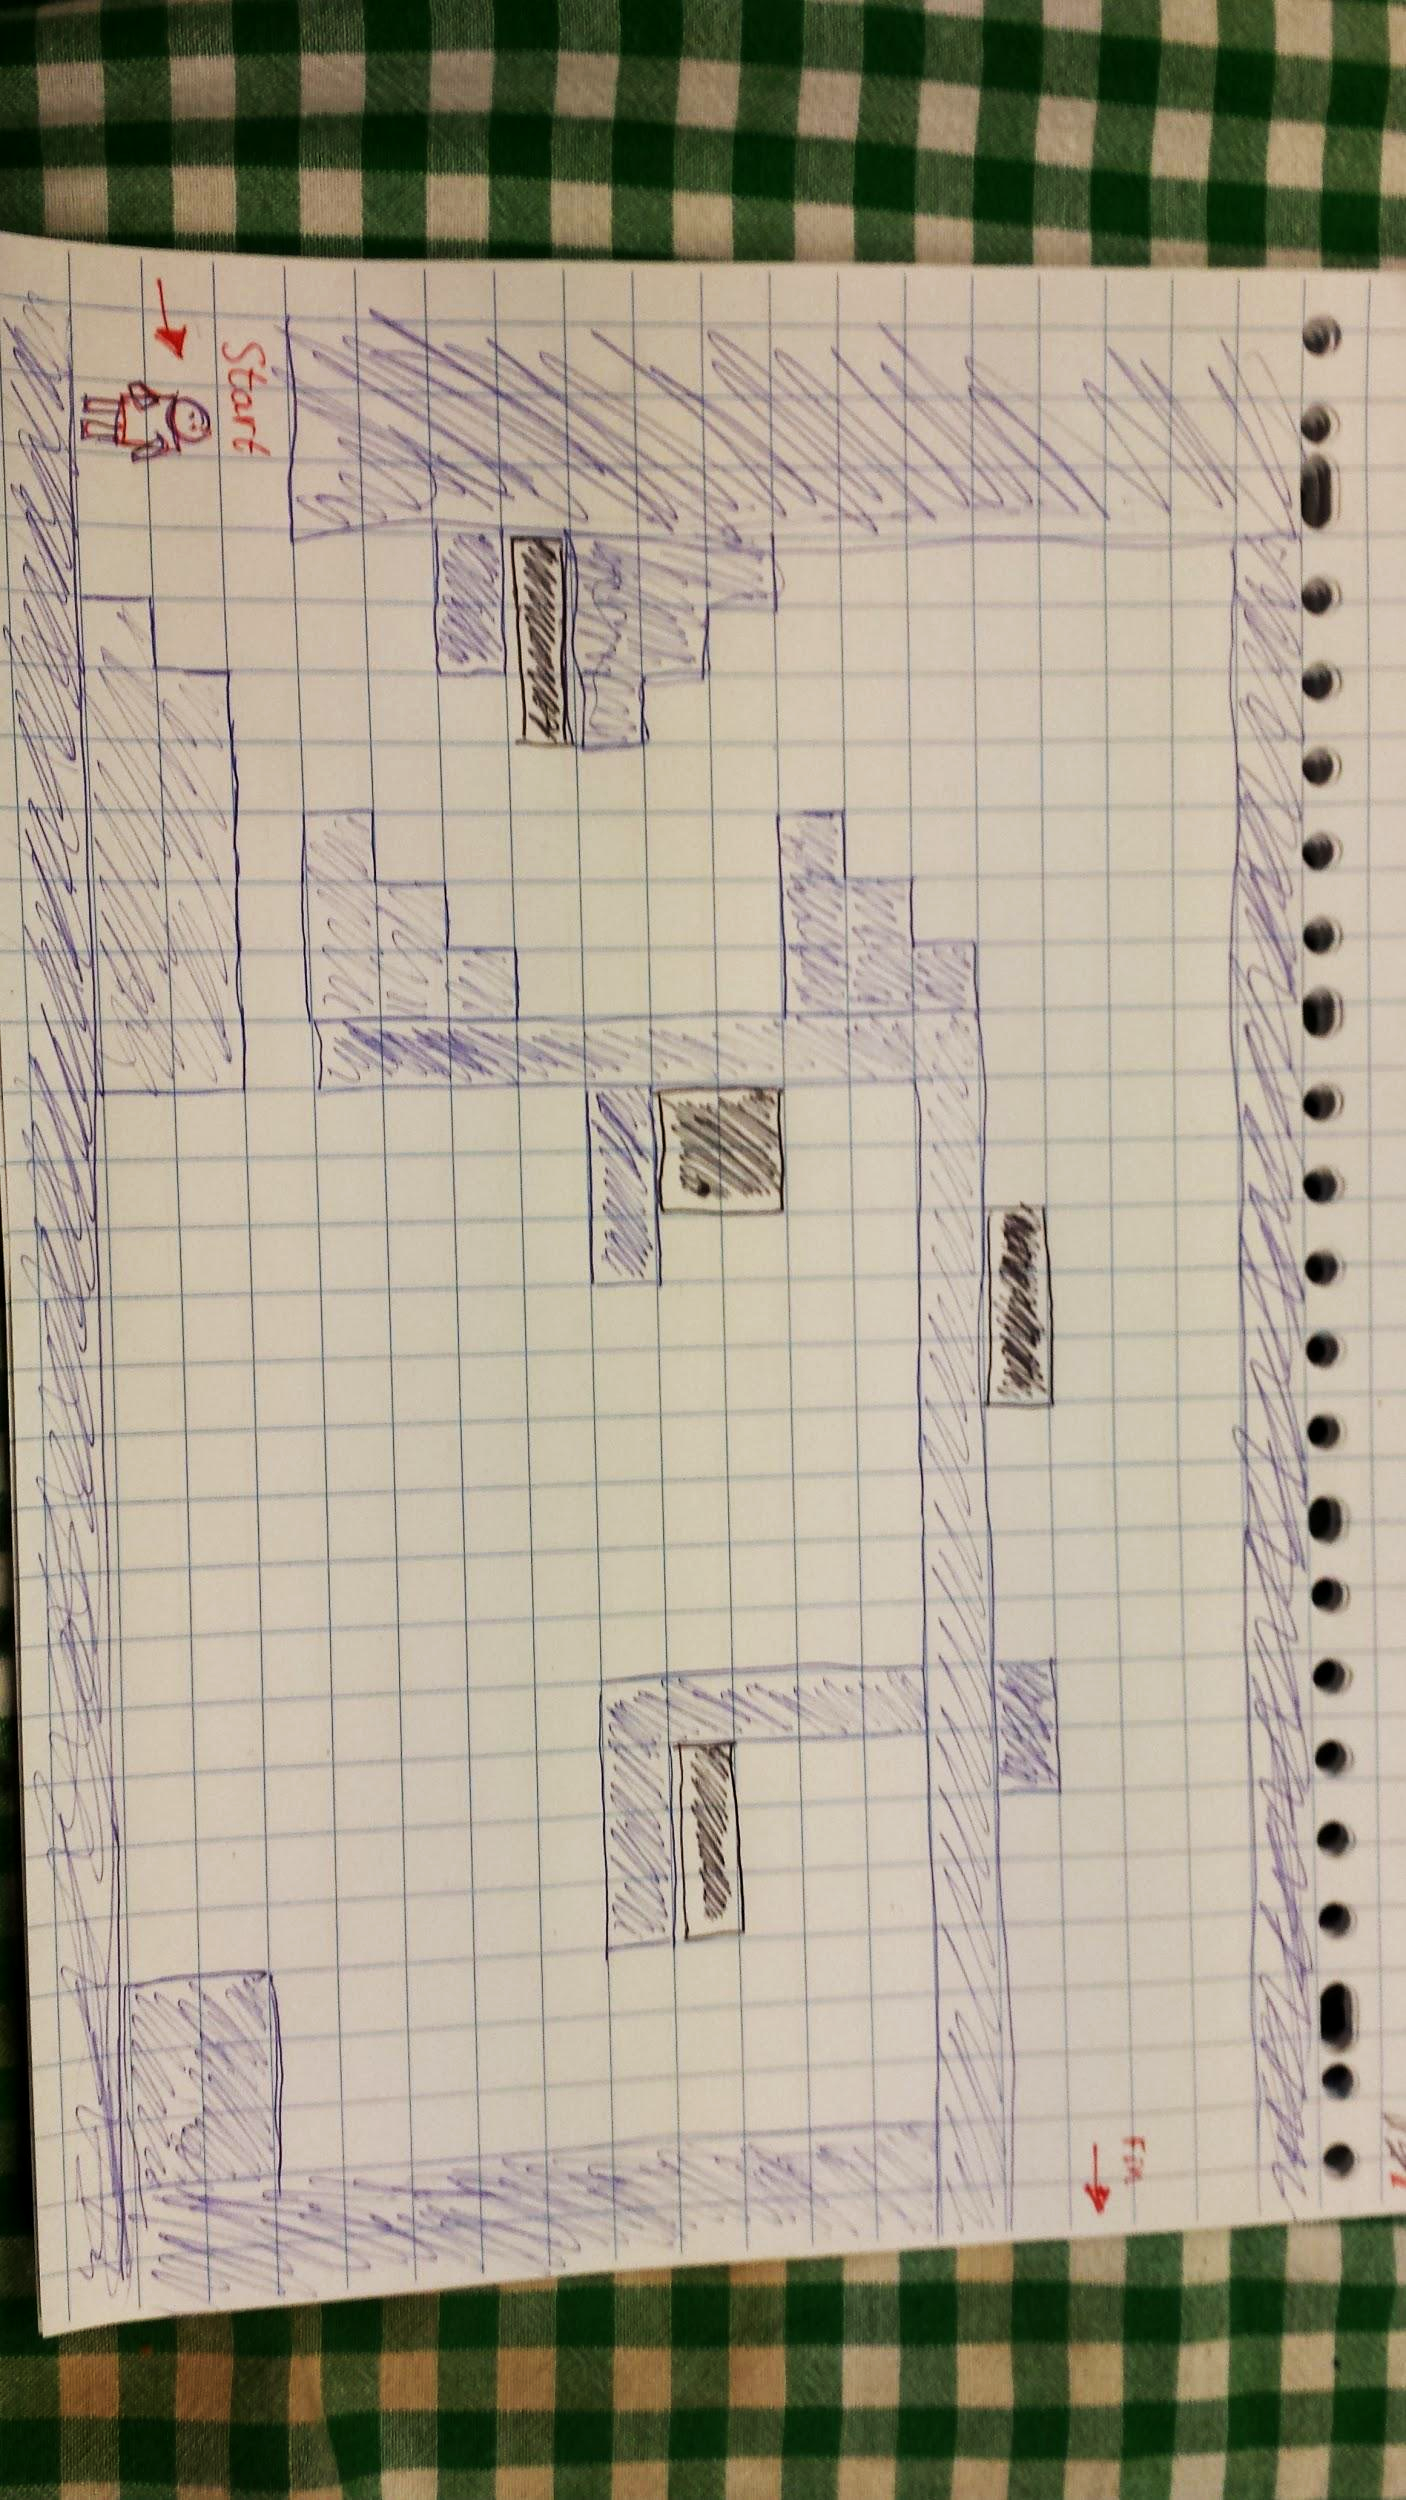 Start
Fin